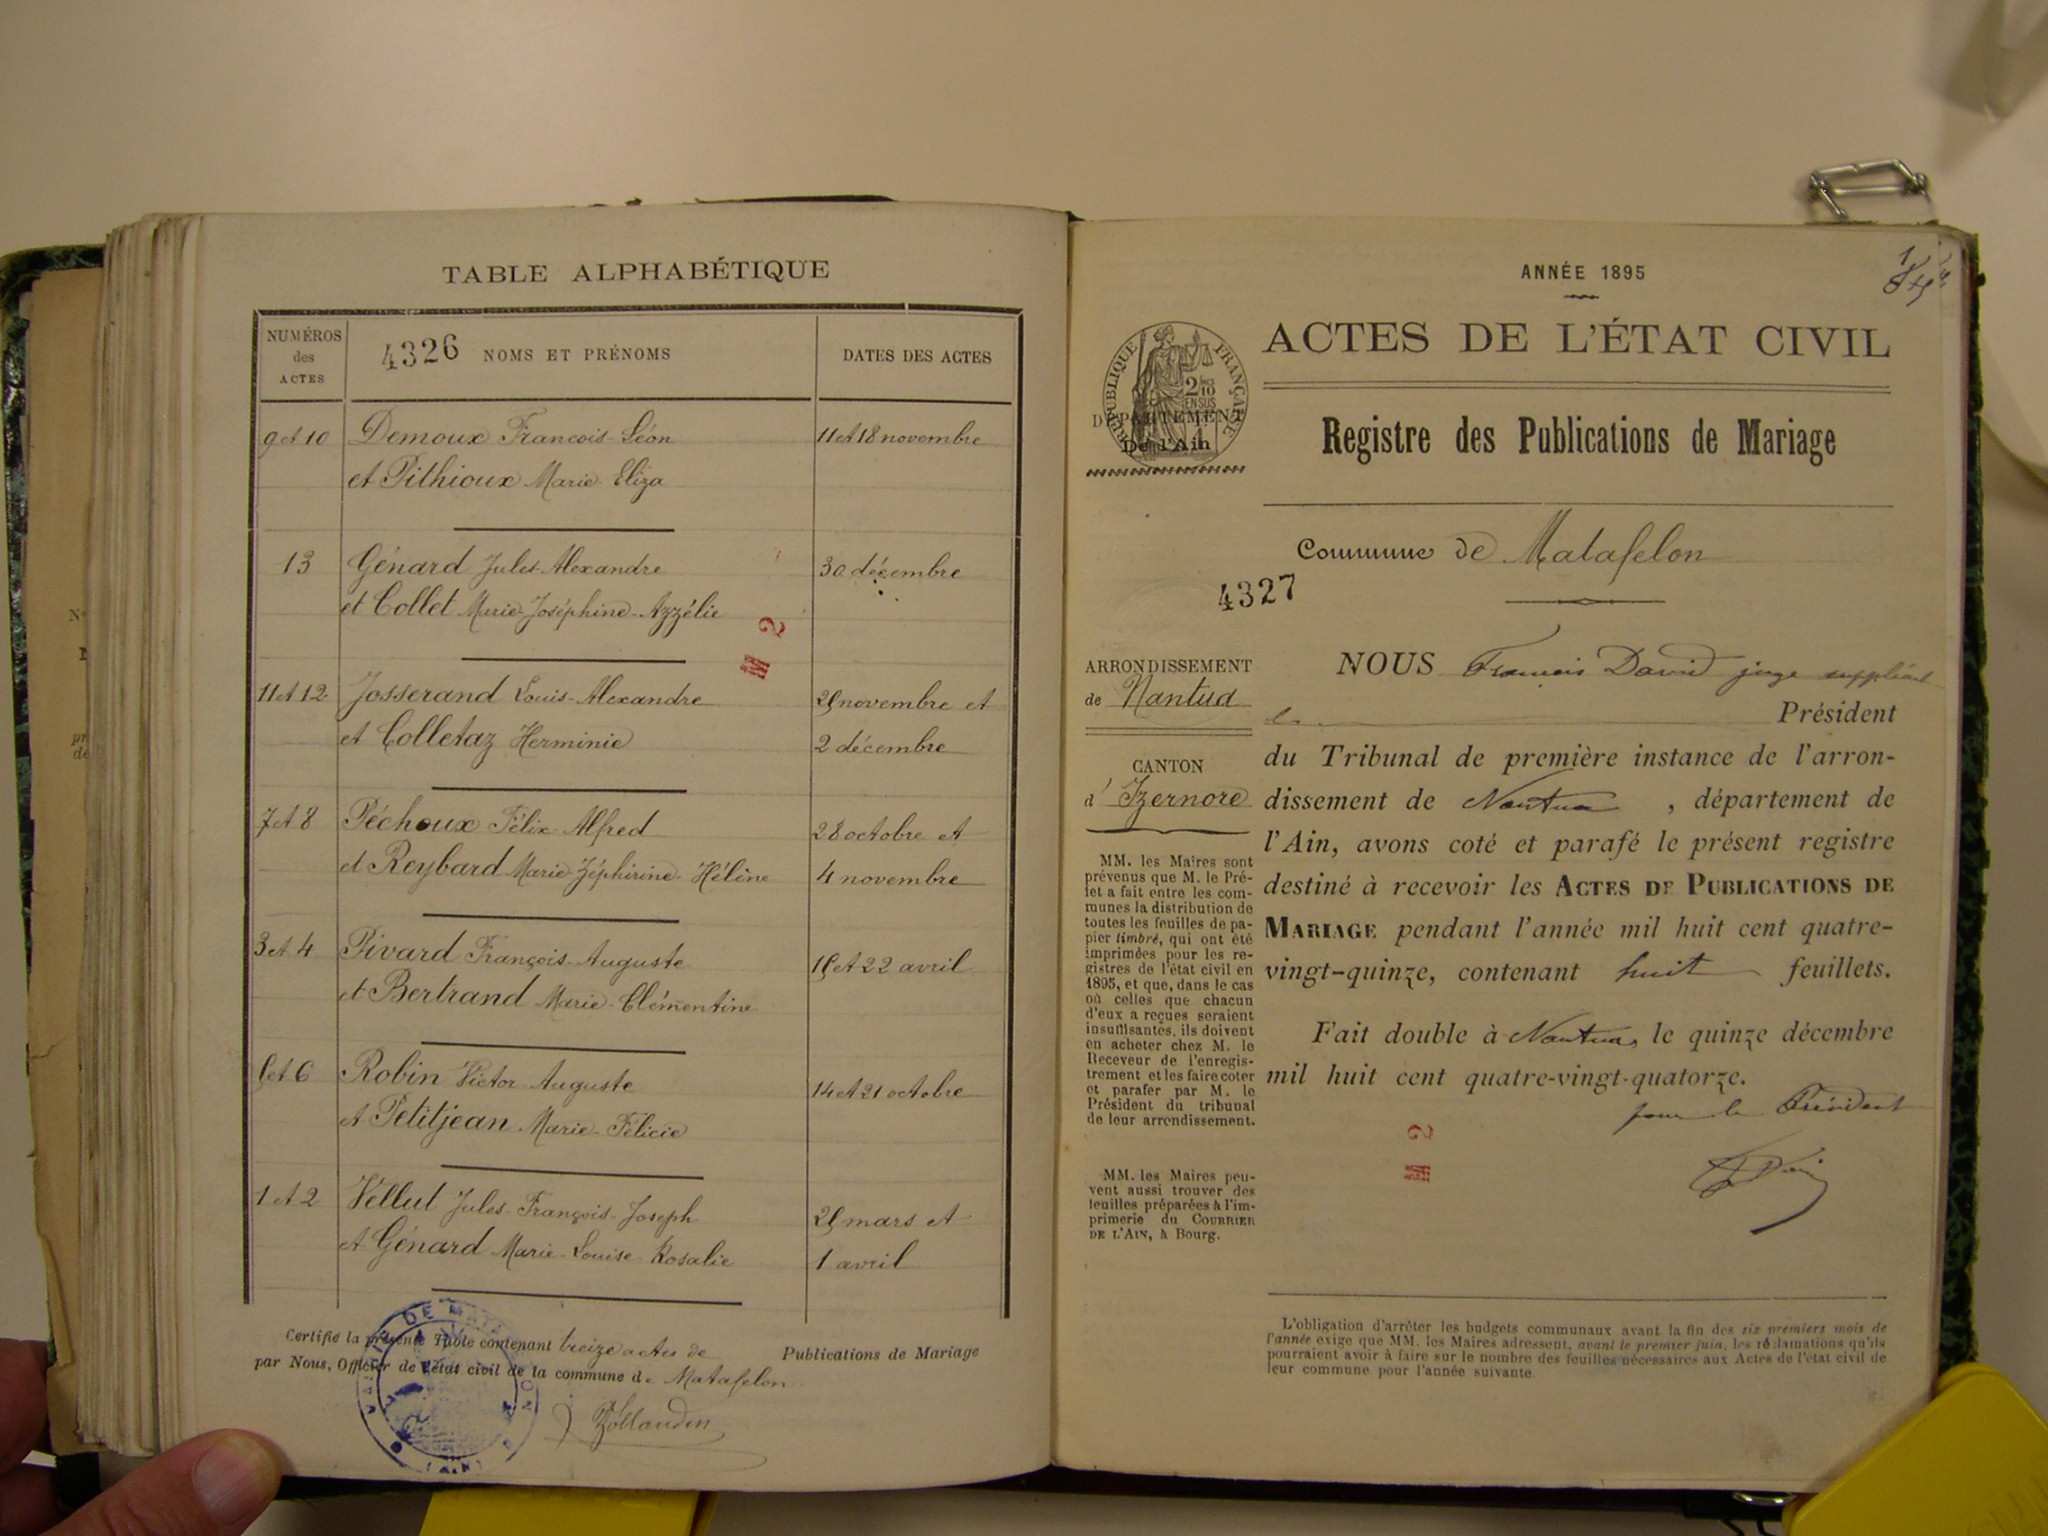 TABLE ALPHABÉTIQUE
NUMÉROS des ACTES
4326 NOMS ET PRÉNOMS
DATES DES ACTES
9 et 10 Demoux François-Léon 11 et 18 novembre
et Pithioux Marie-Eliza
13 Génard Jules-Alexandre 30 décembre
et Collet Marie-Joséphine-Azzélie
M 2
11 et 12 Josserand Louis-Alexandre 25 novembre et
et Colletaz Herminie 2 décembre
7 et 8 Péchoux Félix Alfred 28 octobre et
et Reybard Marie-Zéphirine-Hélène 4 novembre
3 et 4 Pivard François-Auguste 15 et 22 avril
et Bertrand Marie-Clémentine
5 et 6 Robin Victor Auguste 14 et 21 octobre
et Petitjean Marie-Félicie
1 et 2 Vellut Jules-François-Joseph 25 mars et
et Génard Marie-Louise-Rosalie 1 avril
Certifié la présente Table contenant treize actes de Publications de Mariage
par Nous, Officier de l'état civil de la commune de Matafelon
ANNÉE 1895
ACTES DE L'ÉTAT CIVIL
RÉPUBLIQUE FRANÇAISE
2 10
EN SUS
DÉPARTEMENT
De l'Ain
Registre des Publications de Mariage
Commune de Matafelon
4327
ARRONDISSEMENT
de Nantua
CANTON
d' Izernore
MM. les Maires sont
prévenus que M. le Pré-
fet a fait entre les com-
munes la distribution de
toutes les feuilles de pa-
pier timbré, qui ont été
imprimées pour les re-
gistres de l'état civil en
1895, et que, dans le cas
où celles que chacun
d'eux a reçues seraient
insuffisantes, ils doivent
en acheter chez M. le
Receveur de l'enregis-
trement et les faire coter
et parafer par M. le
Président du tribunal
de leur arrondissement.
MM. les Maires peu-
vent aussi trouver des
feuilles préparées à l'im-
primerie du COURRIER
DE L'AIN, à Bourg.
NOUS François David juge suppléant
le Président
du Tribunal de première instance de l'arron-
dissement de Nantua , département de
l'Ain, avons coté et parafé le présent registre
destiné à recevoir les ACTES DE PUBLICATIONS DE
MARIAGE pendant l'année mil huit cent quatre-
vingt-quinze, contenant huit feuillets.
Fait double à Nantua, le quinze décembre
mil huit cent quatre-vingt-quatorze.
pour le Président
M 2
L'obligation d'arrêter les budgets communaux avant la fin des six premiers mois de
l'année exige que MM. les Maires adressent, avant le premier juin, les réclamations qu'ils
pourraient avoir à faire sur le nombre des feuilles nécessaires aux Actes de l'état civil de
leur commune pour l'année suivante.